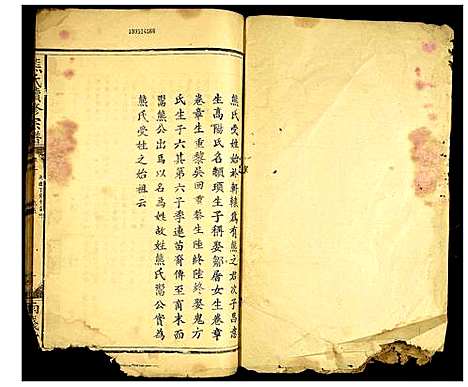 熊氏受姓始於軒轅為有熊之君次子昌意
生高陽氏名顓頊生子稱娶鄒屠女生卷章
卷章生重黎吳回重黎生陸終陸終娶鬼方
氏生子六其第六子季連苗裔俾至商末而
鬻熊公出焉以名為姓故姓熊氏鬻公實為
熊氏受姓之始祖云
熊氏續修宗譜